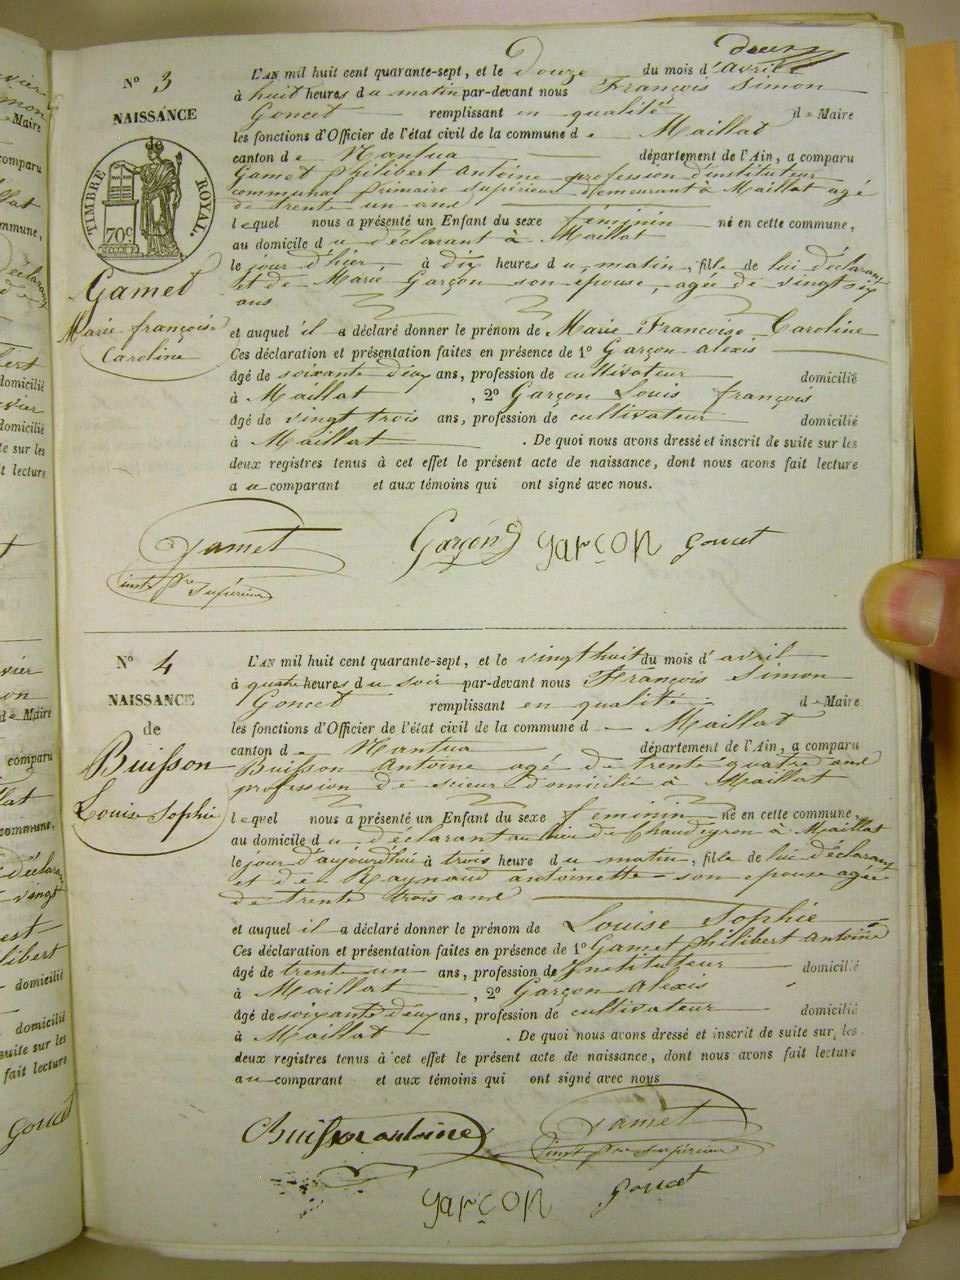 deux
N° 3
NAISSANCE
TIMBRE ROYAL.
70c
Gamet
Marie françoise
Caroline
L'AN mil huit cent quarante-sept, et le douze du mois d'avril
à huit heures du matin par-devant nous François Simon
Goncet remplissant en qualité de Maire
les fonctions d'Officier de l'état civil de la commune de Maillat
canton de Nantua département de l'Ain, a comparu
Gamet philibert Antoine profession d'instituteur
communal primaire supérieur demeurant à Maillat agé
de trente un ans
lequel nous a présenté un Enfant du sexe féminin né en cette commune,
au domicile du déclarant à Maillat
le jour d'hier, à dix heures du matin, fille de lui déclarant
et de Marie Garçon son epouse, agée de vingt six
ans
et auquel il a déclaré donner le prénom de Marie Francoise Caroline
Ces déclaration et présentation faites en présence de 1° Garçon alexis
âgé de soixante deux ans, profession de cultivateur domicilié
à Maillat, 2° Garçon Louis françois
âgé de vingt trois ans, profession de cultivateur domicilié
à Maillat. De quoi nous avons dressé et inscrit de suite sur les
deux registres tenus à cet effet le présent acte de naissance, dont nous avons fait lecture
au comparant et aux témoins qui ont signé avec nous.
Gamet
inst pre supérieur
Garçon garçon goncet
N° 4
NAISSANCE
de
Buisson
Louise Sophie
L'AN mil huit cent quarante-sept, et le vingt huit du mois d'avril
à quatre heures du soir par-devant nous François Simon
Goncet remplissant en qualité de Maire
les fonctions d'Officier de l'état civil de la commune d Maillat
canton de Nantua département de l'Ain, a comparu
Buisson Antoine agé de trente quatre ans
profession de scieur domicilié à Maillat
lequel nous a présenté un Enfant du sexe féminin né en cette commune,
au domicile du déclarant au lieu de à Maillat
le jour d'aujourd'hui à trois heure du matin, fille de lui déclarant
et de Raynaud antoinette son epouse agée
de trente trois ans
et auquel il a déclaré donner le prénom de Louise Sophie
Ces déclaration et présentation faites en présence de 1° Gamet philibert Antoine
âgé de trente un ans, profession de Instituteur domicilié
à Maillat, 2° Garçon Alexis
âgé de soixante deux ans, profession de cultivateur domicilié
à Maillat. De quoi nous avons dressé et inscrit de suite sur les
deux registres tenus à cet effet le présent acte de naissance, dont nous avons fait lecture
au comparant et aux témoins qui ont signé avec nous
Buisson antoine
Gamet
inst pre supérieur
garçon goncet